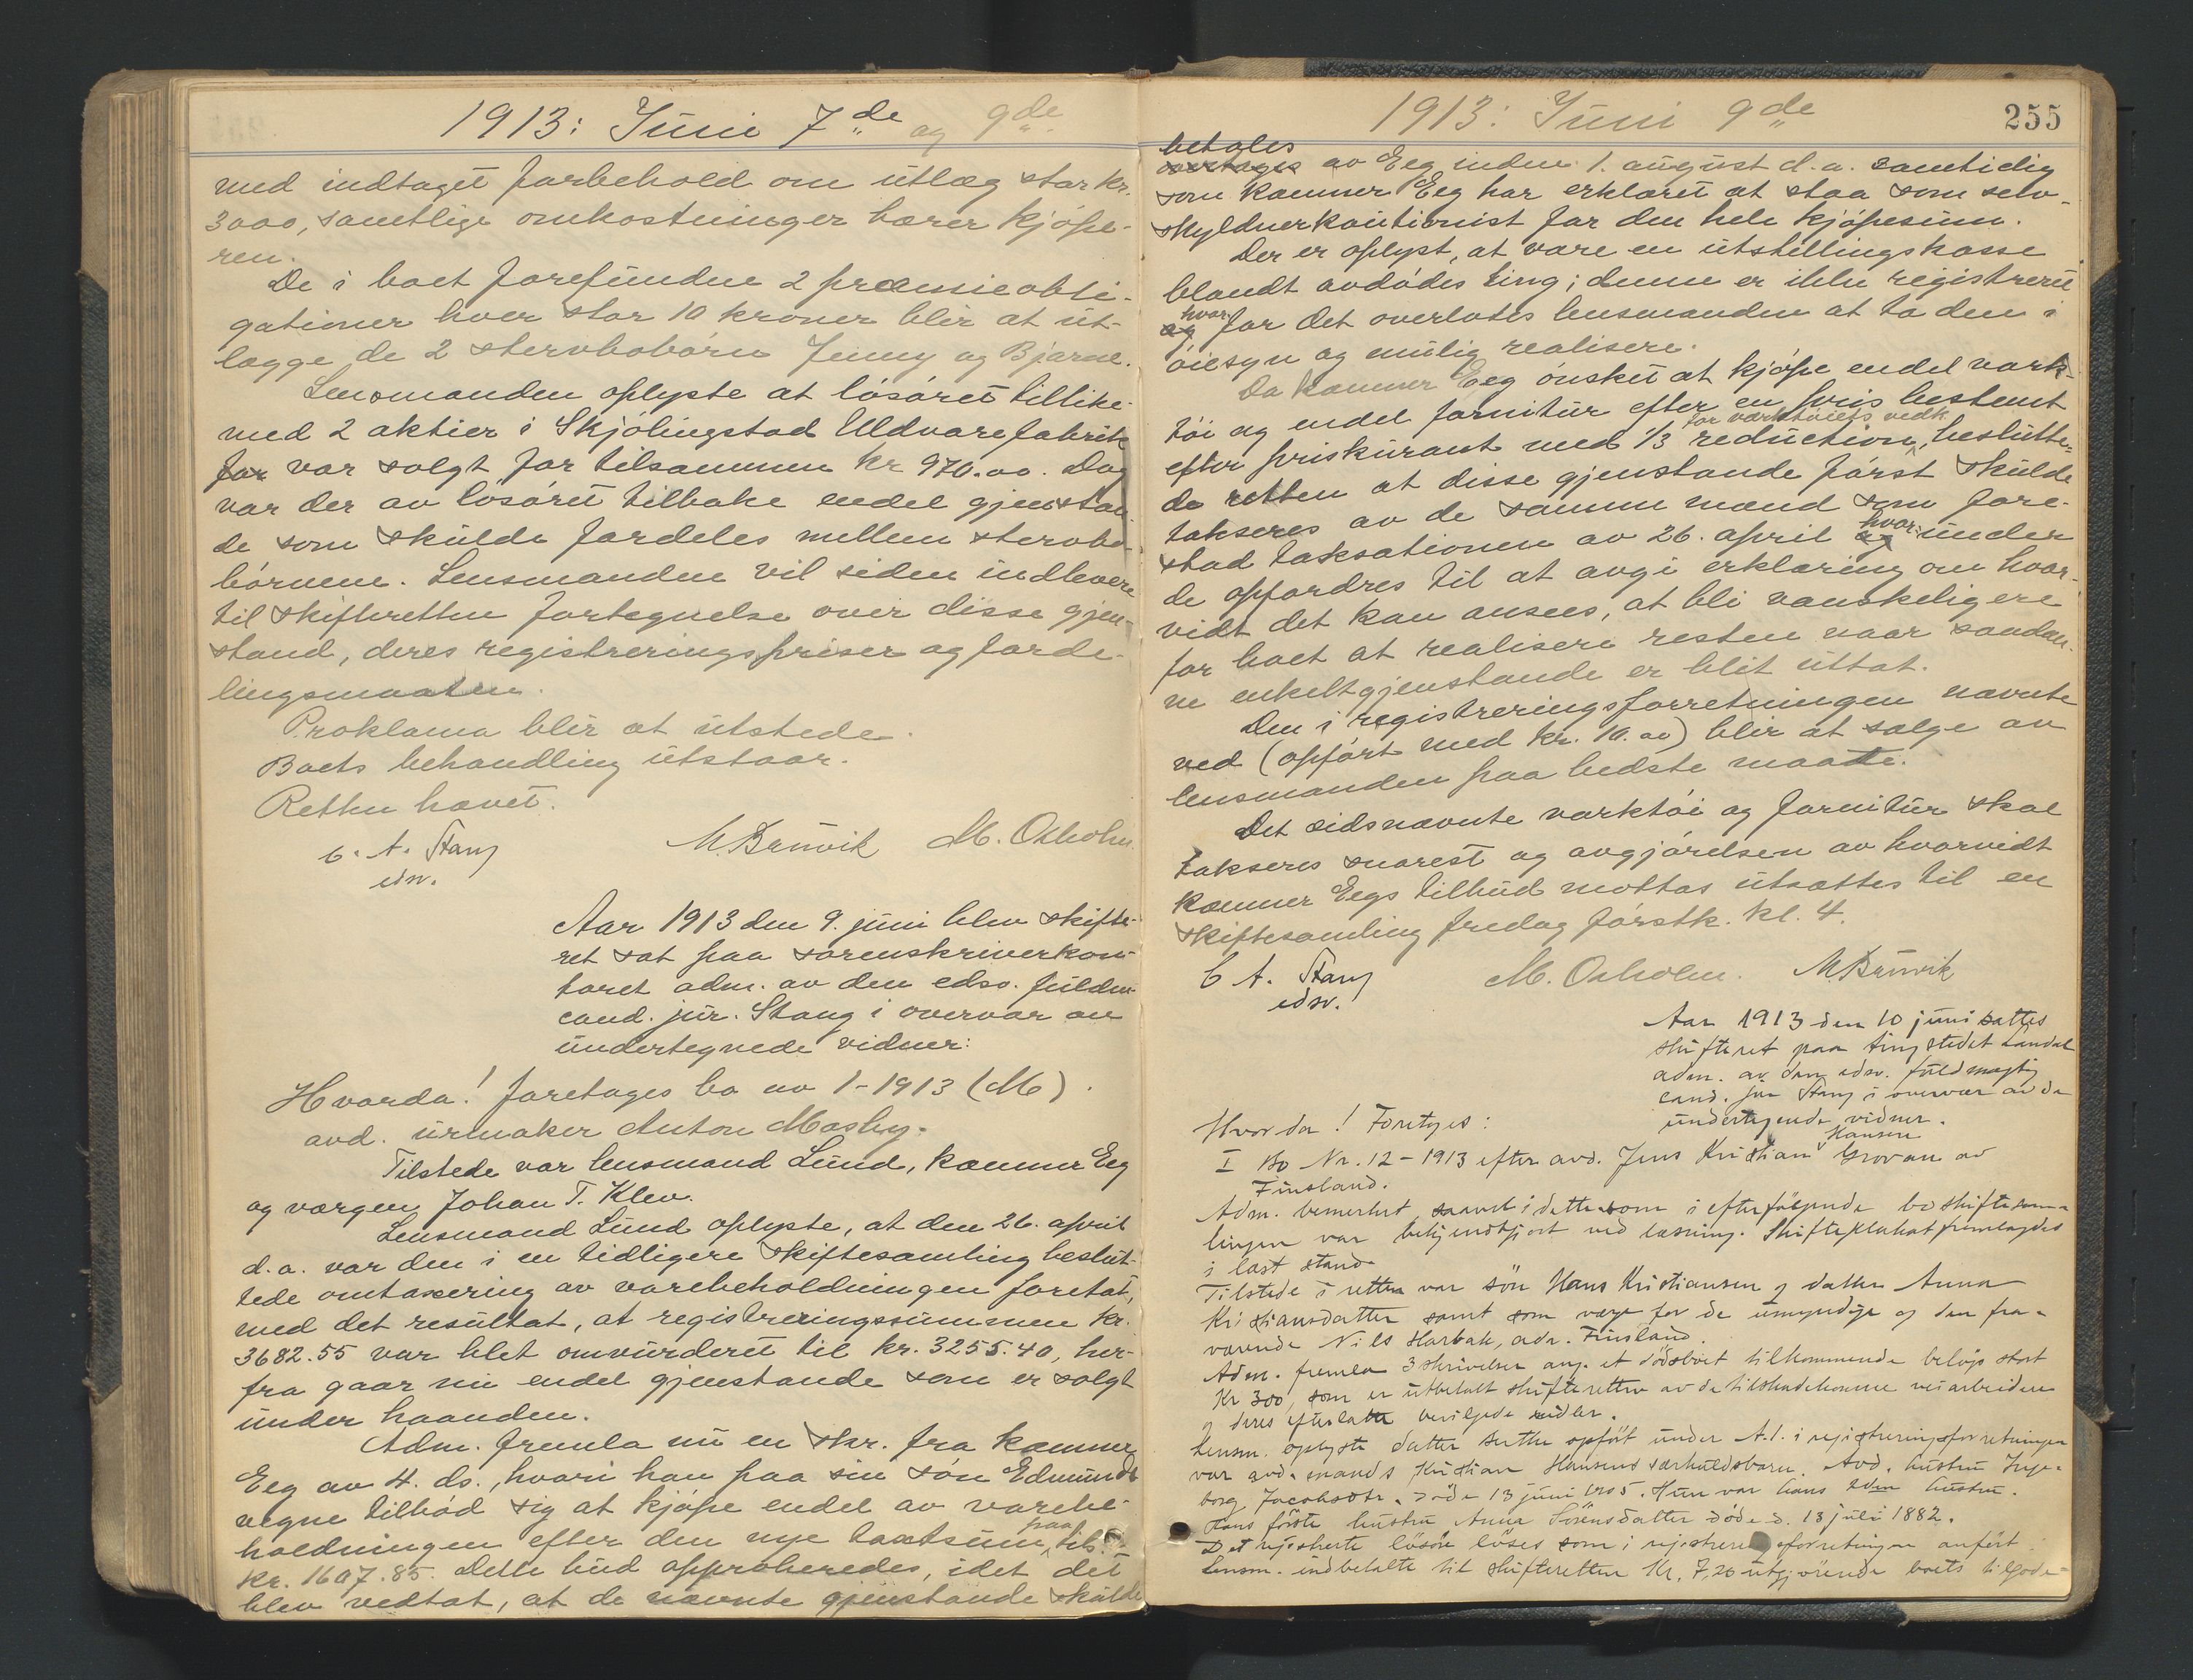 1913: Juni 7de og 9de
med indtaget forbehold om utlæg stor kr.
3000, samtlige omkostninger bærer kjøpe-
ren.
De i boet forefundne 2 præmieobli-
gationer hver stor 10 kroner blir at ut-
lægge de 2 stervbobörn Jenny og Bjarne.
Lensmanden oplyste at lösöret tillike
med 2 aktier i Skjölingstad Uldvarefabrik
for var solgt for tilsammen kr 970.00. Dog
var der av lösöret tilbake endel gjenstan
de som skulde fordeles mellem stervbo-
börnene. Lensmanden vil siden indlevere
til skifteretten fortegnelse over disse gjen-
stand, deres registreringspriser og forde-
lingsmaaten.
Proklama blir at utstede.
Boets behandling utstaar.
Retten hævet.
C. A. Stang M. Brunvik M. Oxholm
edsv.
Aar 1913 den 9. juni blev skifte-
ret sat paa sorenskriverkon-
toret adm. av den edsv. fuldm.
cand. jur. Stang i overvær av
undertegnede vidner:
Hvorda! foretages bo no 1-1913 (M)
avd. urmaker Anton Mosby.
Tilstede var lensmand Lund, kæmner Eeg
ogværgen Johan T. Klev.
Lensmand Lund oplyste, at den 26. april
d.a. var den i en tidligere skiftesamling beslut-
tede omtaxering av varebeholdningen foretat,
med det resultat, at registreringssummen kr.
3682.55 var blet omvurderet til kr. 3255.40, her-
fra gaar nu endel gjenstande som er solgt
under haanden.
Adm. fremla nu en skr. fra kæmner
Eeg av 4. ds., hvori han paa sin sön Edmunds
vegne tilböd sig at kjöpe endel av varebe-
holdningen efter den nye taxtsum paa til
kr. 1607.85. Dette bud approberedes, idet det
blev vedtat, at de nævnte gjenstande skulde
1913: Juni 9de
255
betales
overtages av Eeg inden 1. august d.a. samtidig
som kæmner Eeg har erklæret at staa som selv-
skyldnerkautionist for den hele kjöpesum.
Der er oplyst, at være en utstillingskasse
blandt avdödes ting; denne er ikke registreret
og hvorfor det overlates lensmanden at ta den i
öiesyn og mulig realisere.
Da kæmner Eeg önsket at kjöpe endel værk-
töi og endel fornitur efter en pris bestemt
for værktöiets vedk.
efter priskurant med 1/3 reduction, beslutte-
de retten at disse gjenstande först skulde
takseres av de samme mænd som fore-
stod taksationen av 26. april og hvorunder
de opfordres til at avgi erklæring om hvor-
vidt det kan ansees, at bli vanskeligere
for boet at realisere resten naar saadan-
ne enkeltgjenstande er blit uttat.
Den i registreringsforretningen nævnte
ved (opfört med kr. 10.00) blir at sælge av
lensmanden paa bedste maate.
Det sidsnævnte værktöi og fornitur skal
takseres snarest og avgjörelsen av hvorvidt
kæmner Eegs tilbud mottas utsættes til en
skiftesamling fredag förstk. kl. 4.
C A. Stang M. Oxholm. M. Brunvik
edsv.
Aar 1913 den 10 juni sattes
skifteret paa tingstedet Landal
adm. av den edsv. fuldmægtig
cand. jur Stang i overvær av de
undertegnede vidner.
Hvorda! Foretages:
I Bo Nr. 12-1913 efter avd. Jens Kristian Hansen Grovan av
Finsland.
Adm. bemerket, saavel i dette som i efterfölgende bo skiftesam-
lingen var bekjendtgjort ved læsning. Skifteplakat fremlagdes
i læst stand.
Tilstede i retten var sön Hans Kristiansen og datter Anna
Kristiansdatter samt som værge for de umyndige og den fra-
værende Nils Harbak, adr. Finsland.
Adm. fremla 3 skrivelser ang. et dödsboet tilkommende belöp stort
Kr 300, som er utbetalt skifteretten av de tilskadekomne veiarbeidere
og deres efterlatte bevilgede midler.
Lensm. oplyste datter Berthe opfört under A.1. i registreringsforretningen
var avd. mands Kristian Hansens særkuldsbarn. Avd. hustru Inge-
borg Jacobsdtr. döde 13 juni 1905. Hun var hans 2den hustru.
Hans förste hustru Anna Sörensdatter döde d. 13 juli 1882.
Det registrerte lösöre löses som i registreringsforretningen anfört.
Lensm. indbetalte til skifteretten Kr. 7,20 utgjörende boets tilgode-